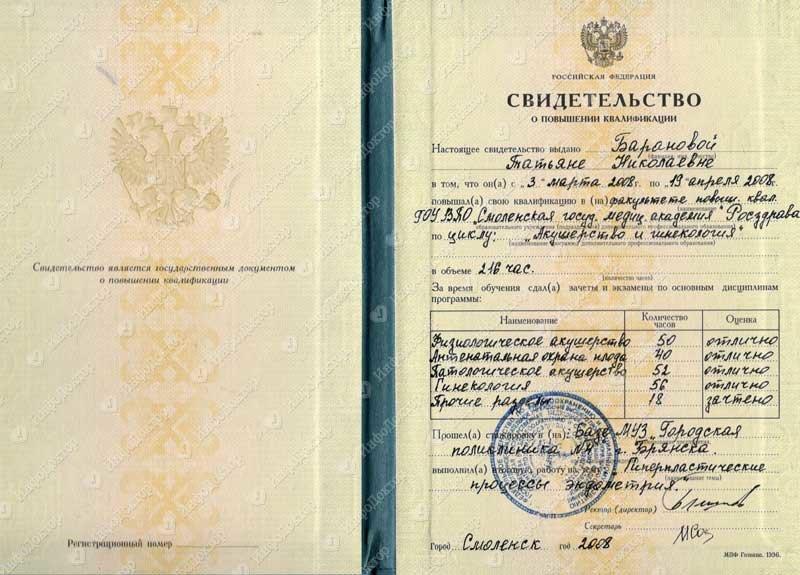 Свидетельство является государственным документом
о повышении квалификации
Регистрационный номер
РОССИЙСКАЯ ФЕДЕРАЦИЯ
СВИДЕТЕЛЬСТВО
О ПОВЫШЕНИИ КВАЛИФИКАЦИИ
Настоящее свидетельство выдано Барановой
Татьяне Николаевне
в том, что он(а) с „3“ марта 2008г. по „19“ апреля 2008г.
повышал(а) свою квалификацию в (на) факультете повыш. квал.
ГОУ ВПО „Смоленская госуд. медиц. академия“ Росздрава
по циклу: „Акушерство и гинекология“
в объеме 216 час.
(количество часов)
За время обучения сдал(а) зачеты и экзамены по основным дисциплинам
программы:
Наименование Количество часов Оценка
Физиологическое акушерство 50 отлично
Антенатальная охрана плода 40 отлично
Патологическое акушерство 52 отлично
Гинекология 56 отлично
Прочие разделы 18 зачтено
Прошел(а) стажировку в (на): Базе МУЗ „Городская
поликлиника г. Брянска
выполнил(а) итоговую работу на тему „Гиперпластические
процессы эндометрия.“
Ректор (директор)
Секретарь
Город Смоленск год 2008
МПФ Гознака. 1996.
ИнфоДоктор